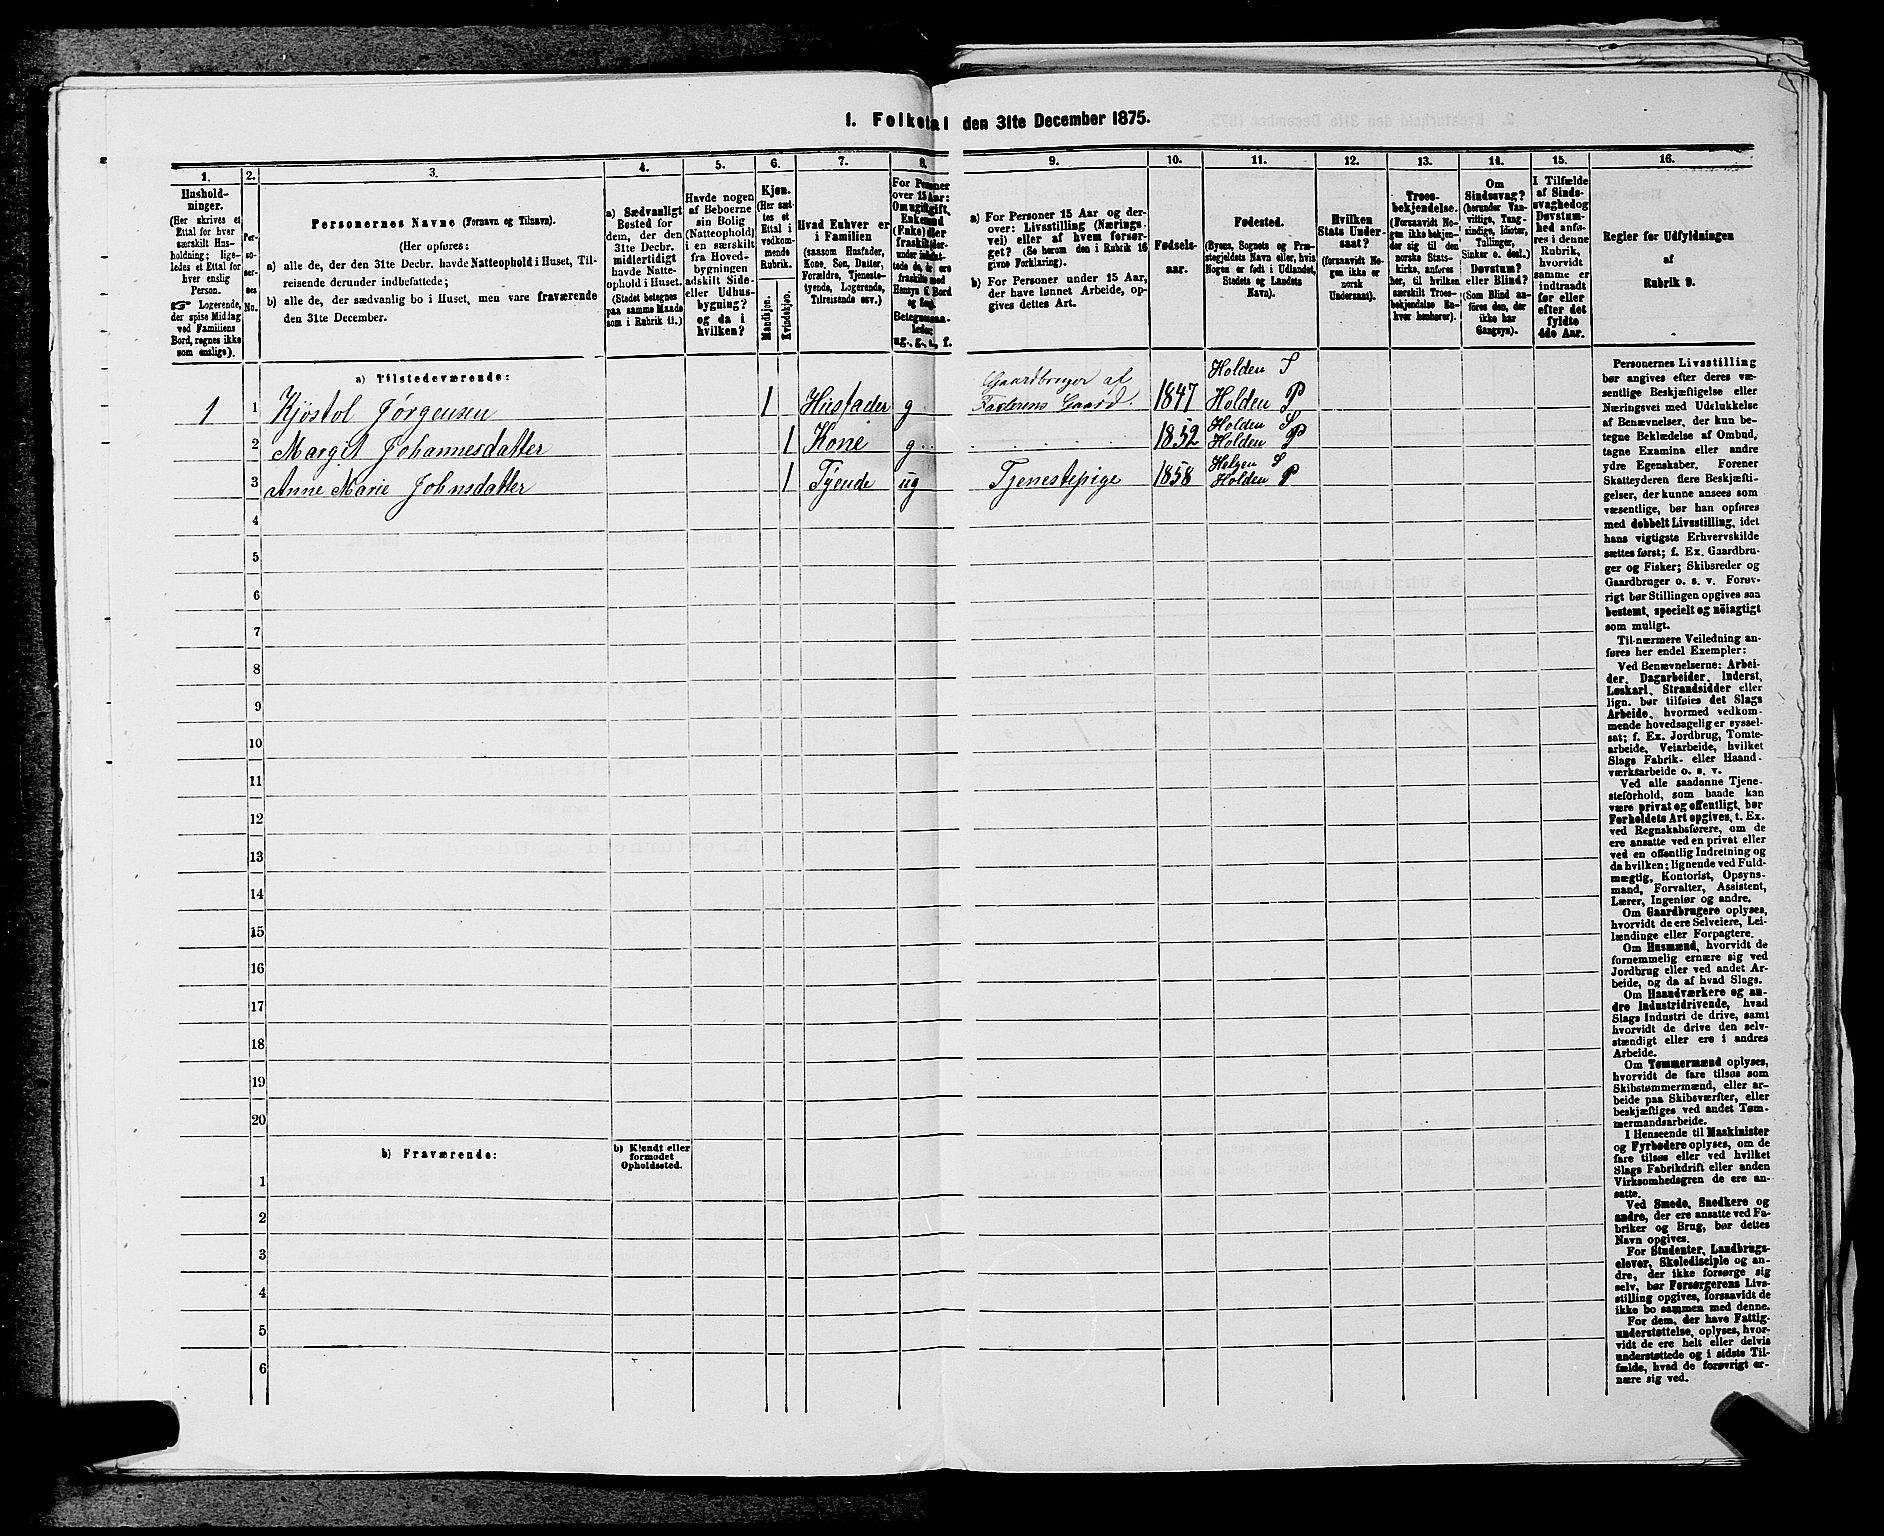 1. Folketal den 31te December 1875.
1.
2.
3.
4.
5.
6.
7.
8.
9.
10.
11.
12.
13.
14.
15.
16.
Hushold-
ninger.
(Her skrives et
Ettal for hver
særskilt Hus-
holdning; lige-
ledes et Ettal for
hver enslig
Person.
☞ Logerende,
der spise Middag
ved Familiens
Bord, regnes ikke
som enslige).
Per-
so-
ner-
nes
No.
Personernes Navne (Fornavn og Tilnavn).
(Her opføres:
a) alle de, der den 31te Decbr. havde Natteophold i Huset, Til-
reisende derunder indbefattede;
b) alle de, der sædvanlig bo i Huset, men vare fraværende
den 31te December.
a) Sædvanligt
Bosted for
dem, der den
31te Decbr.
midlertidigt
havde Natte-
ophold i Huset.
(Stedet betegnes
paa samme Maade
som i Rubrik 11.)
Havde nogen
af Beboerne
sin Bolig
(Natteophold)
i en særskilt
fra Hoved-
bygningen
adskilt Side-
eller Udhus-
bygning?
og da i
hvilken?
Kjøn.
(Her sæt-
tes et
Ettal i
vedkom-
mende
Rubrik.
Mandkjøn.
Kvindekjøn.
Hvad Enhver er
i Familien
(saasom Husfader,
Kone, Søn, Datter,
Forældre, Tjeneste-
tyende, Logerende,
Tilreisende osv.)
For Personer
over 15 Aar:
Om ugift, gift,
Enkemand
(Enke) eller
fraskilt
Betegnes saa-
ledes:
ug., g., e., f.
a) For Personer 15 Aar og der-
over: Livsstilling (Nærings-
vei) eller af hvem forsør-
get? (Se herom den i Rubrik 16
givne Forklaring).
b) For Personer under 15 Aar,
der have lønnet Arbeide, op-
gives dettes Art.
Fødsels-
aar.
Fødested.
(Byens, Sognets og Præ-
stegjeldets Navn eller, hvis
Nogen er født i Udlandet,
Stedets og Landets
Navn).
Hvilken
Stats Under-
saat?
(forsaavidt No-
gen ikke er
norsk
Undersaat).
Troes-
bekjendelse.
(Forsaavidt No-
gen ikke bekjen-
der sig til den
norske Stats-
kirke, anføres
her, til hvilken
særskilt Troes-
bekjendelse En-
hver henhører).
Om
Sindssvag?
(herunder Van-
vittige, Tung-
sindige, Idioter,
Tullinger,
Sinker o. desl.)
Døvstum?
eller Blind?
(Som Blind an-
føres den, der
ikke har
Gangsyn).
I Tilfælde
af Sinds-
svaghed og
Døvstum-
hed anfø-
res i denne
Rubrik,
hvorvidt
samme er
indtraadt
før eller
efter det
fyldte
4de Aar.
Regler for Udfyldningen
af
Rubrik 9.
a) Tilstedeværende:
1 1 Kjøstol Jørgensen 1 Husfader g Gaardbruger af
Faderens Gaard. 1847 Holden S
Holden P
2 Margit Johannesdatter 1 Kone g . . . . 1852 Holden S
Holden P
3 Anne Marie Johnsdatter 1 Tyende ug Tjenestepige 1858 Helgen S
Holden P
4
5
6
7
8
9
10
11
12
13
14
15
16
17
18
19
20
b) Fraværende:
b) Kjendt eller
formodet
Opholdssted.
1
2
3
4
5
6
Personernes Livsstilling
bør angives efter deres væ-
sentlige Beskjæftigelse eller
Næringsvei med Udelukkelse
af Benævnelser, der kun be-
tegne Beklædelse af Ombud,
tagne Examina eller andre
ydre Egenskaber. Forener
Skatteyderen flere Beskjæfti-
gelser, der kunne ansees som
væsentlige, bør han opføres
med dobbelt Livsstilling, idet
hans vigtigste Erhvervskilde
sættes først; f. Ex. Gaardbru-
ger og Fisker; Skibsreder og
Gaardbruger o. s. v. Forøv-
rigt bør Stillingen opgives saa
bestemt, specielt og nöiagtigt
som muligt.
Til nærmere Veiledning an-
føres her endel Exempler:
Ved Benævnelserne: Arbei-
der, Dagarbeider, Inderst,
Løskarl, Strandsidder eller
lign. bør tilføies det Slags
Arbeide, hvormed vedkom-
mende hovedsagelig er syssel-
sat; f. Ex. Jordbrug, Tomte-
arbeide, Veiarbeide, hvilket
Slags Fabrik- eller Haand-
værksarbeide o. s. v.
Ved alle saadanne Tjene-
steforhold, som baade kan
være privat og offentligt, bør
Forholdets Art opgives, t. Ex.
ved Regnskabsførere, om de
ere ansatte ved en privat eller
ved en offentlig Indretning og
da hvilken; lignende ved Fuld-
mægtig, Kontorist, Opsyns-
mand, Forvalter, Assistent,
Lærer, Ingeniør og andre.
Om Gaardbrugere oplyses,
hvorvidt de ere Selveiere, Lei-
lændinge eller Forpagtere.
Om Husmænd, hvorvidt de
fornemmelig ernære sig ved
Jordbrug eller ved andet Ar-
beide, og da af hvad Slags.
Om Haandværkere og an-
dre Industridrivende, hvad
Slags Industri de drive, samt
hvorvidt de drive den selv-
stændigt eller ere i andres
Arbeide.
Om Tømmermænd oplyses,
hvorvidt de fare tilsøs som
Skibstømmermænd, eller ar-
beide paa Skibsværfter, eller
beskjæftiges ved andet Tøm-
mermandsarbeide.
I Henseende til Maskinister
og Fyrbødere oplyses, om de
fare tilsøs eller ved hvilket
Slags Fabrikdrift eller anden
Virksomhedsgren de ere an-
satte.
Ved Smede, Snedkere og
andre, der ere ansatte ved Fa-
briker og Brug, bør dettes
Navn opgives.
For Studenter, Landbrugs-
elever, Skoledisciple og an-
dre, der ikke forsørge sig
selv, bør Forsørgerens Livs-
stilling opgives, forsaavidt de
ikke bo sammen med denne.
For dem, der have Fattig-
understøttelse, oplyses, hvor-
vidt de ere helt eller delvis
understøttede og i sidste Til-
fælde, hvad de forøvrigt er-
nære sig ved.